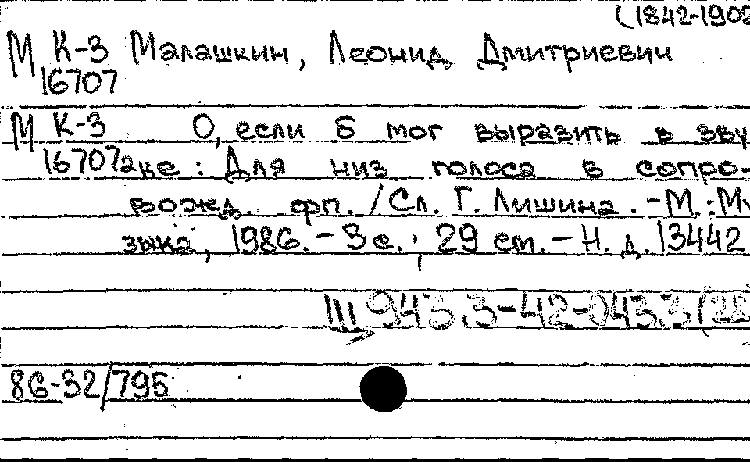 (1842-1902
М К-3 Малашкин, Леонид Дмитриевич
16707
М К-3 О, если б мог выразить в зву
16707 аке: Для низ голоса в сопро-
вожд. фп. / Сл. Г. Лишина. - М.: Му
зыка, 1986. - 3 с.; 29 см. - Н. д. 13442
III 943.3-42-043.3(22
86-32/795